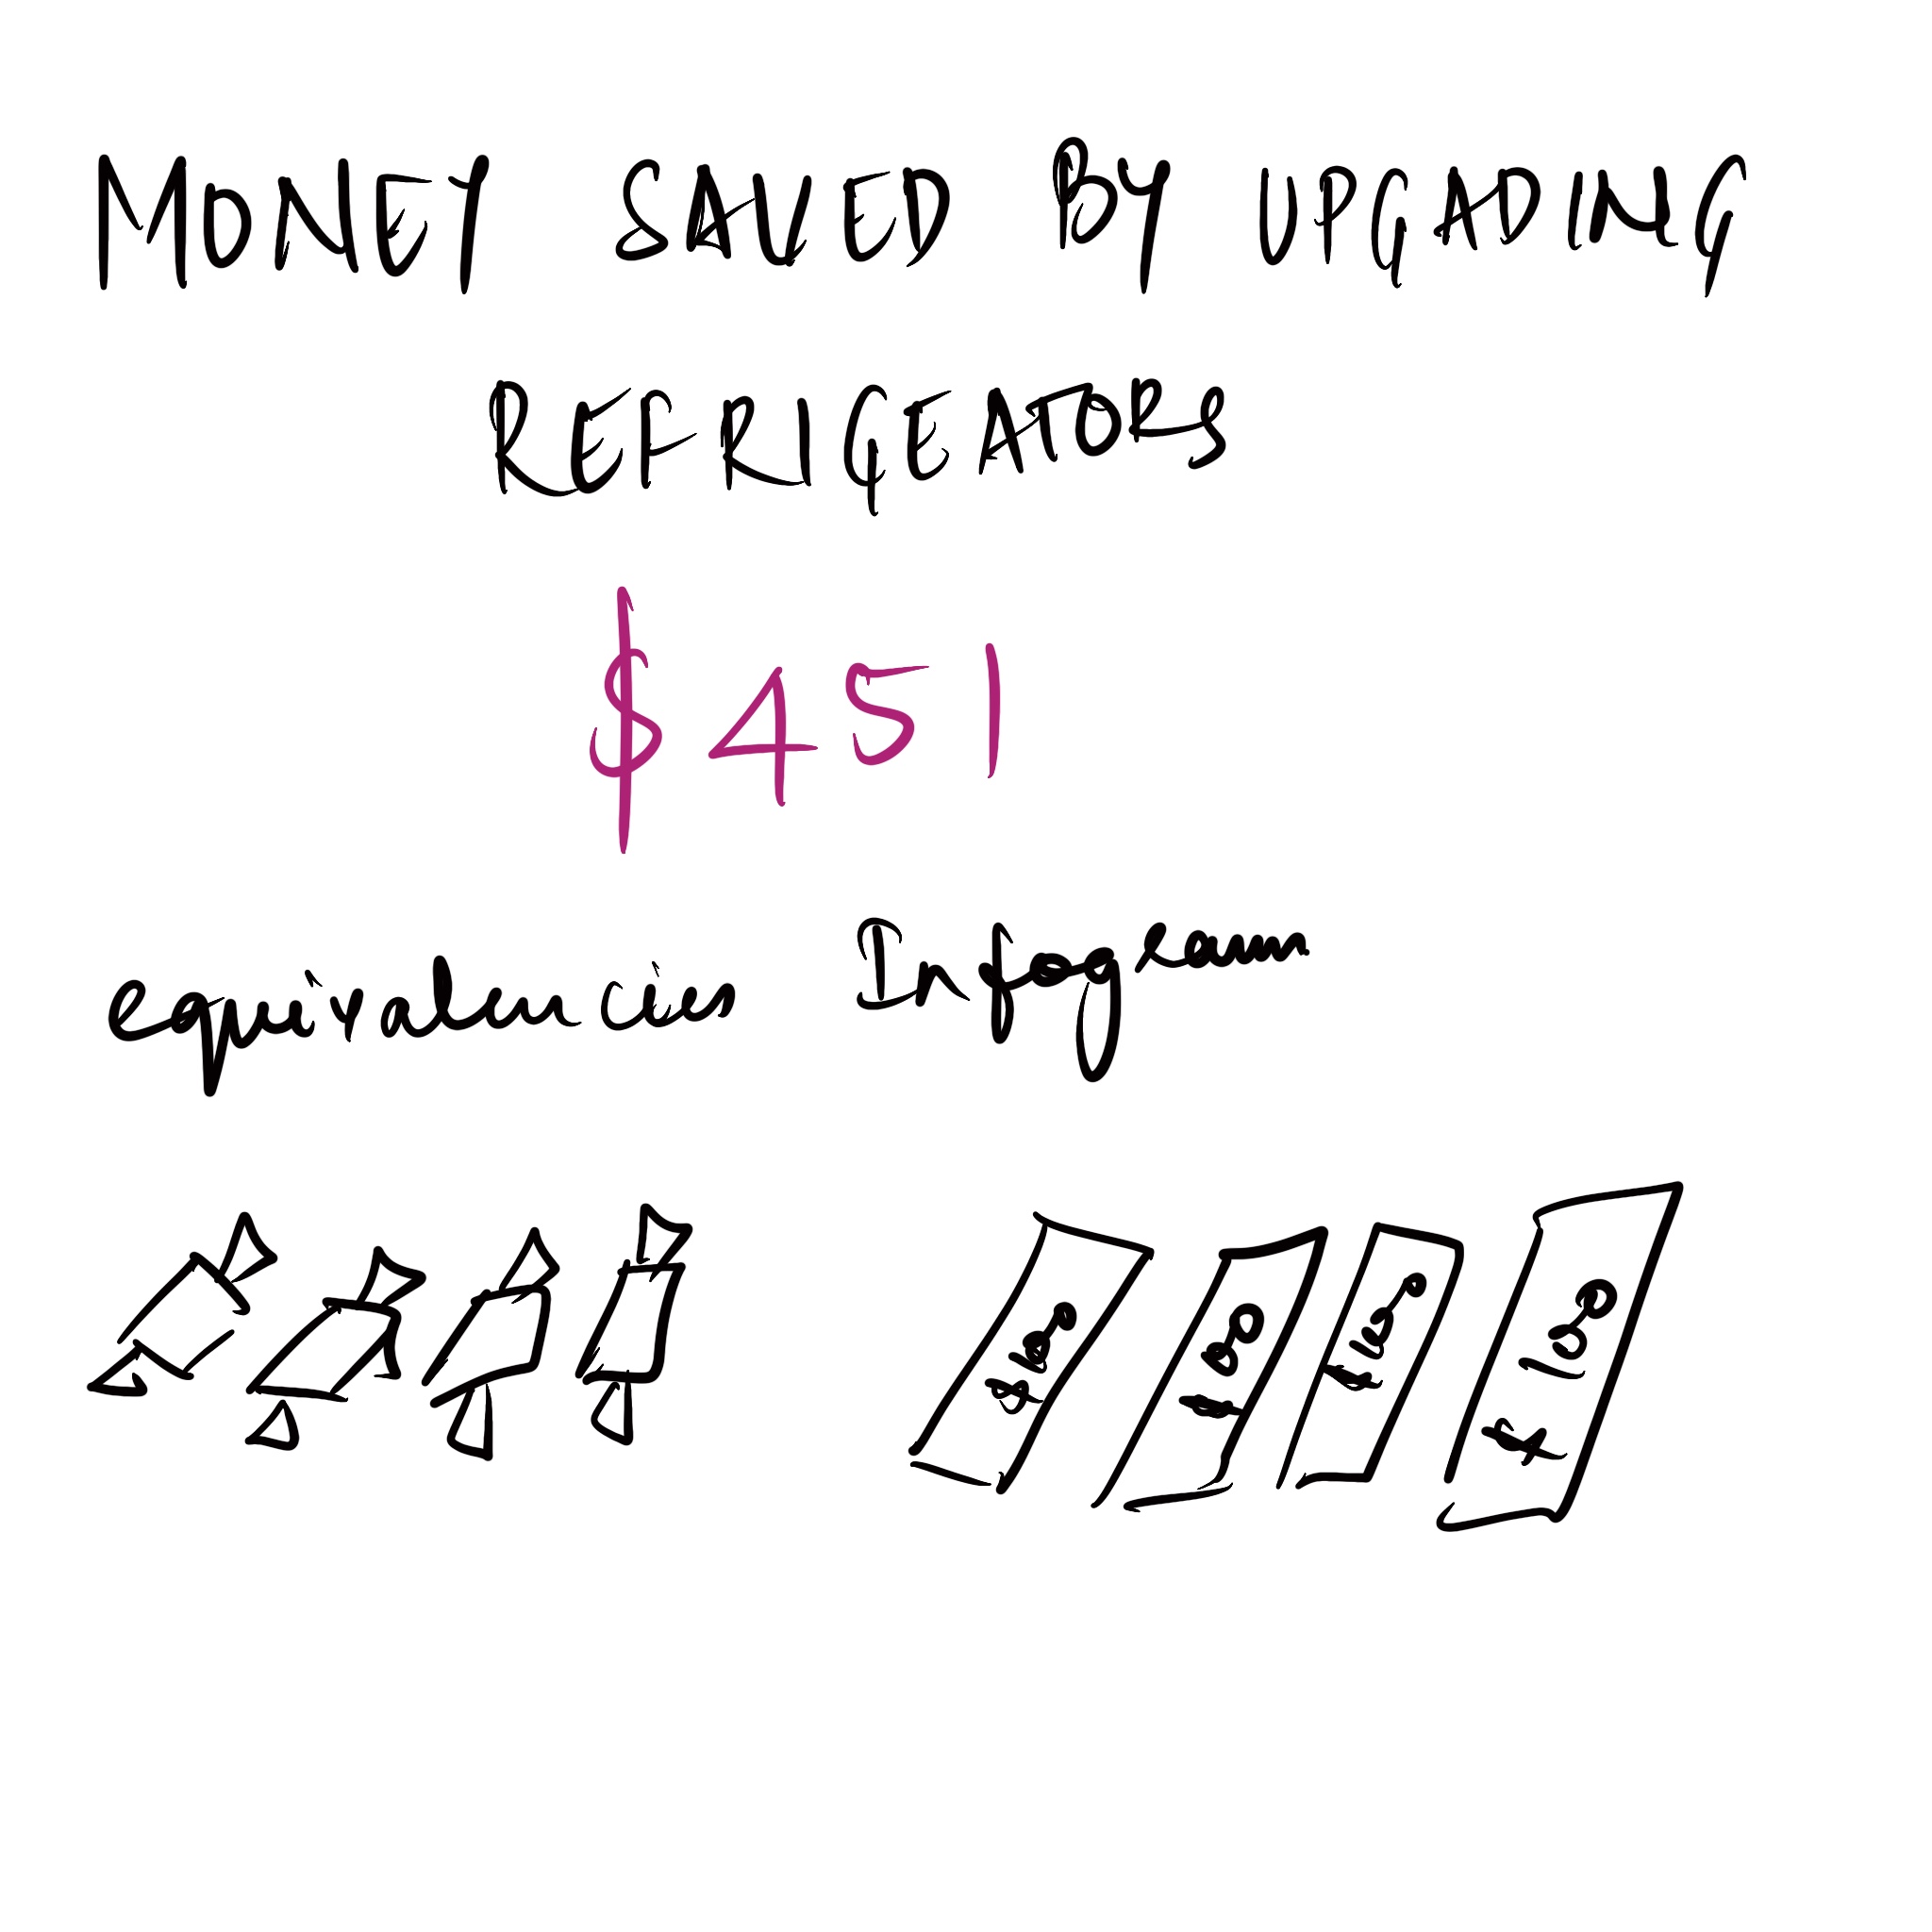 MONEY SAVED BY UPGADING
REFRIGEATORS
$451
equivalencies Infogram